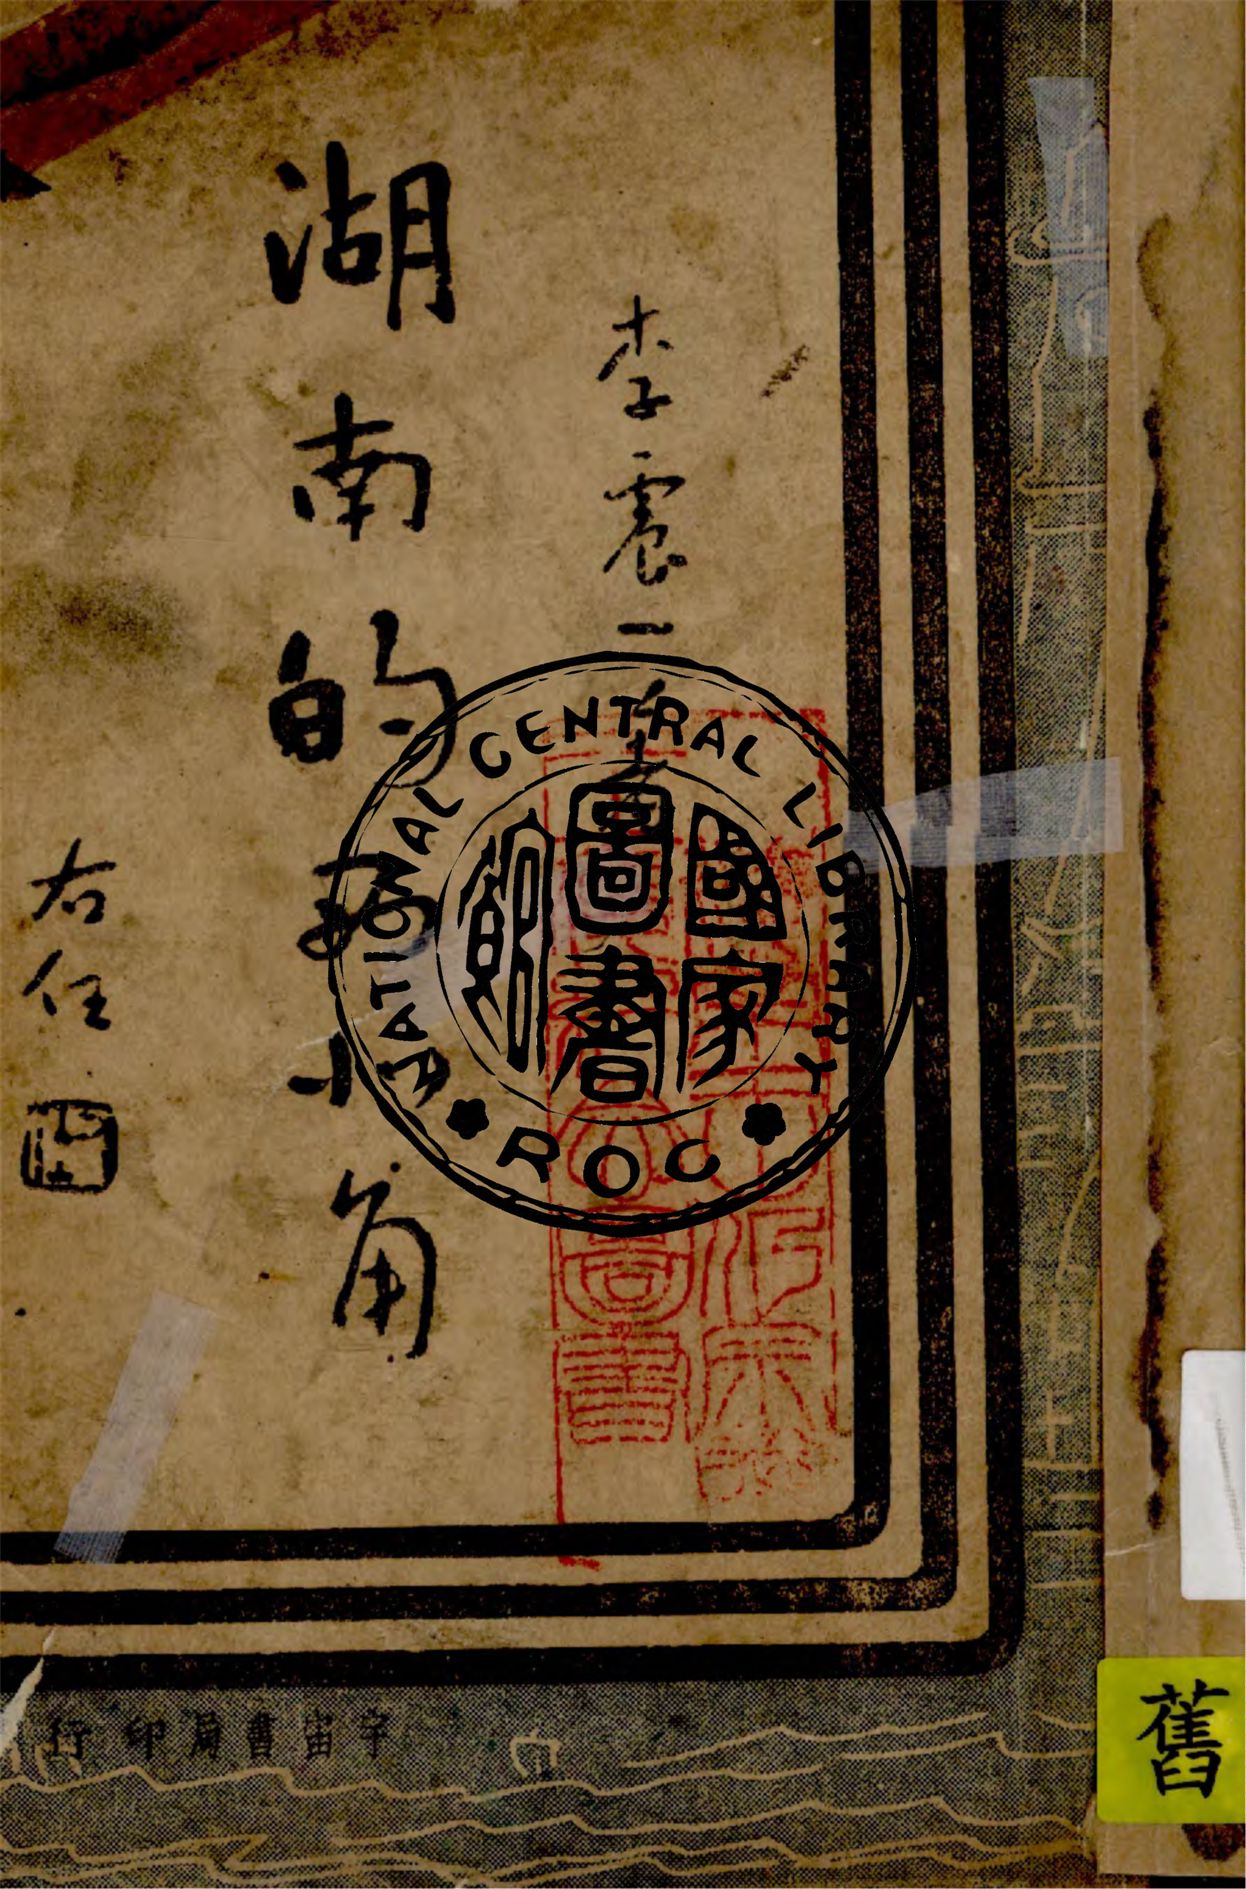 李震一著
湖南的西北角
右任
宇宙書局印行
NATIONAL CENTRAL LIBRARY
國家圖書館
ROC
舊